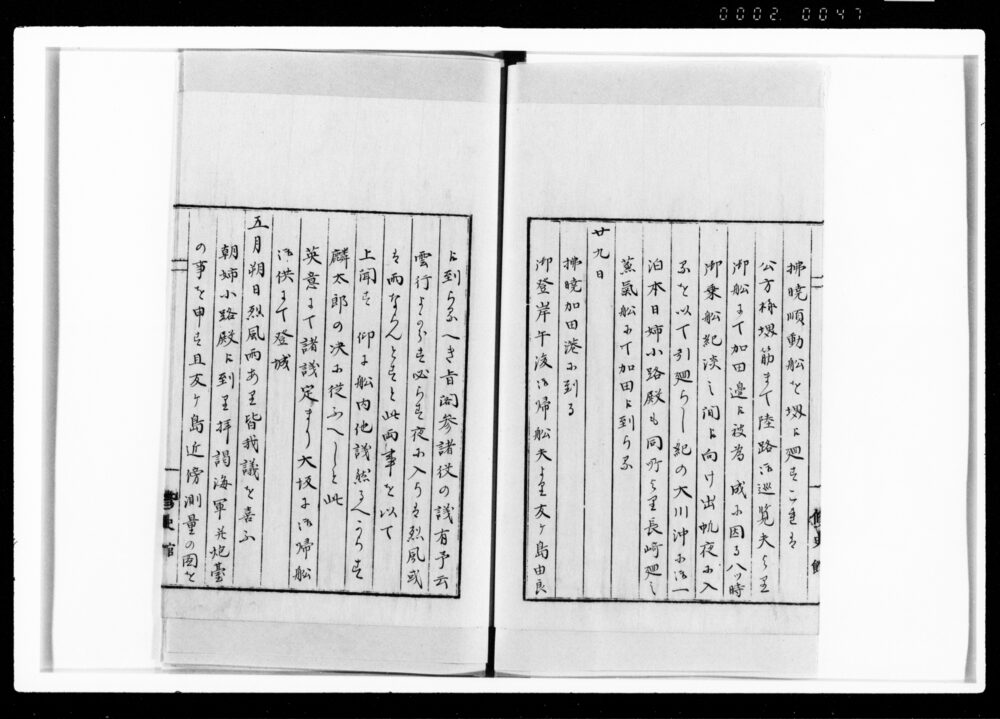 0002 0047
拂曉順動船を堺に廻す これは
公方様堺筋まて陸路御巡覧夫より
御船にて加田邊に被為 成に因る八ッ時
御乗船紀淡之間に向け出帆夜に入
るを以て引廻らし紀の大川沖に御一
泊本日姉小路殿も同所より長崎廻之
蒸氣船にて加田に到らる
廿九日
拂曉加田港に到る
御登岸午後御帰船夫より友ヶ島由良
に到らるへき旨閣参諸従の議有予云
雲行よからす必らす夜に入らは烈風或
は雨ならんとすと此両事を以て
上聞す 仰に船内他議然るへからす
麟太郎の决に従ふへしと此
英意にて諸議定まり大坂に御帰船
御供にて登城
五月朔日烈風雨あり皆我議を喜ふ
朝姉小路殿に到り拝謁海軍并炮臺
の事を申す且友ヶ島近傍測量の図を
修史館
修史官